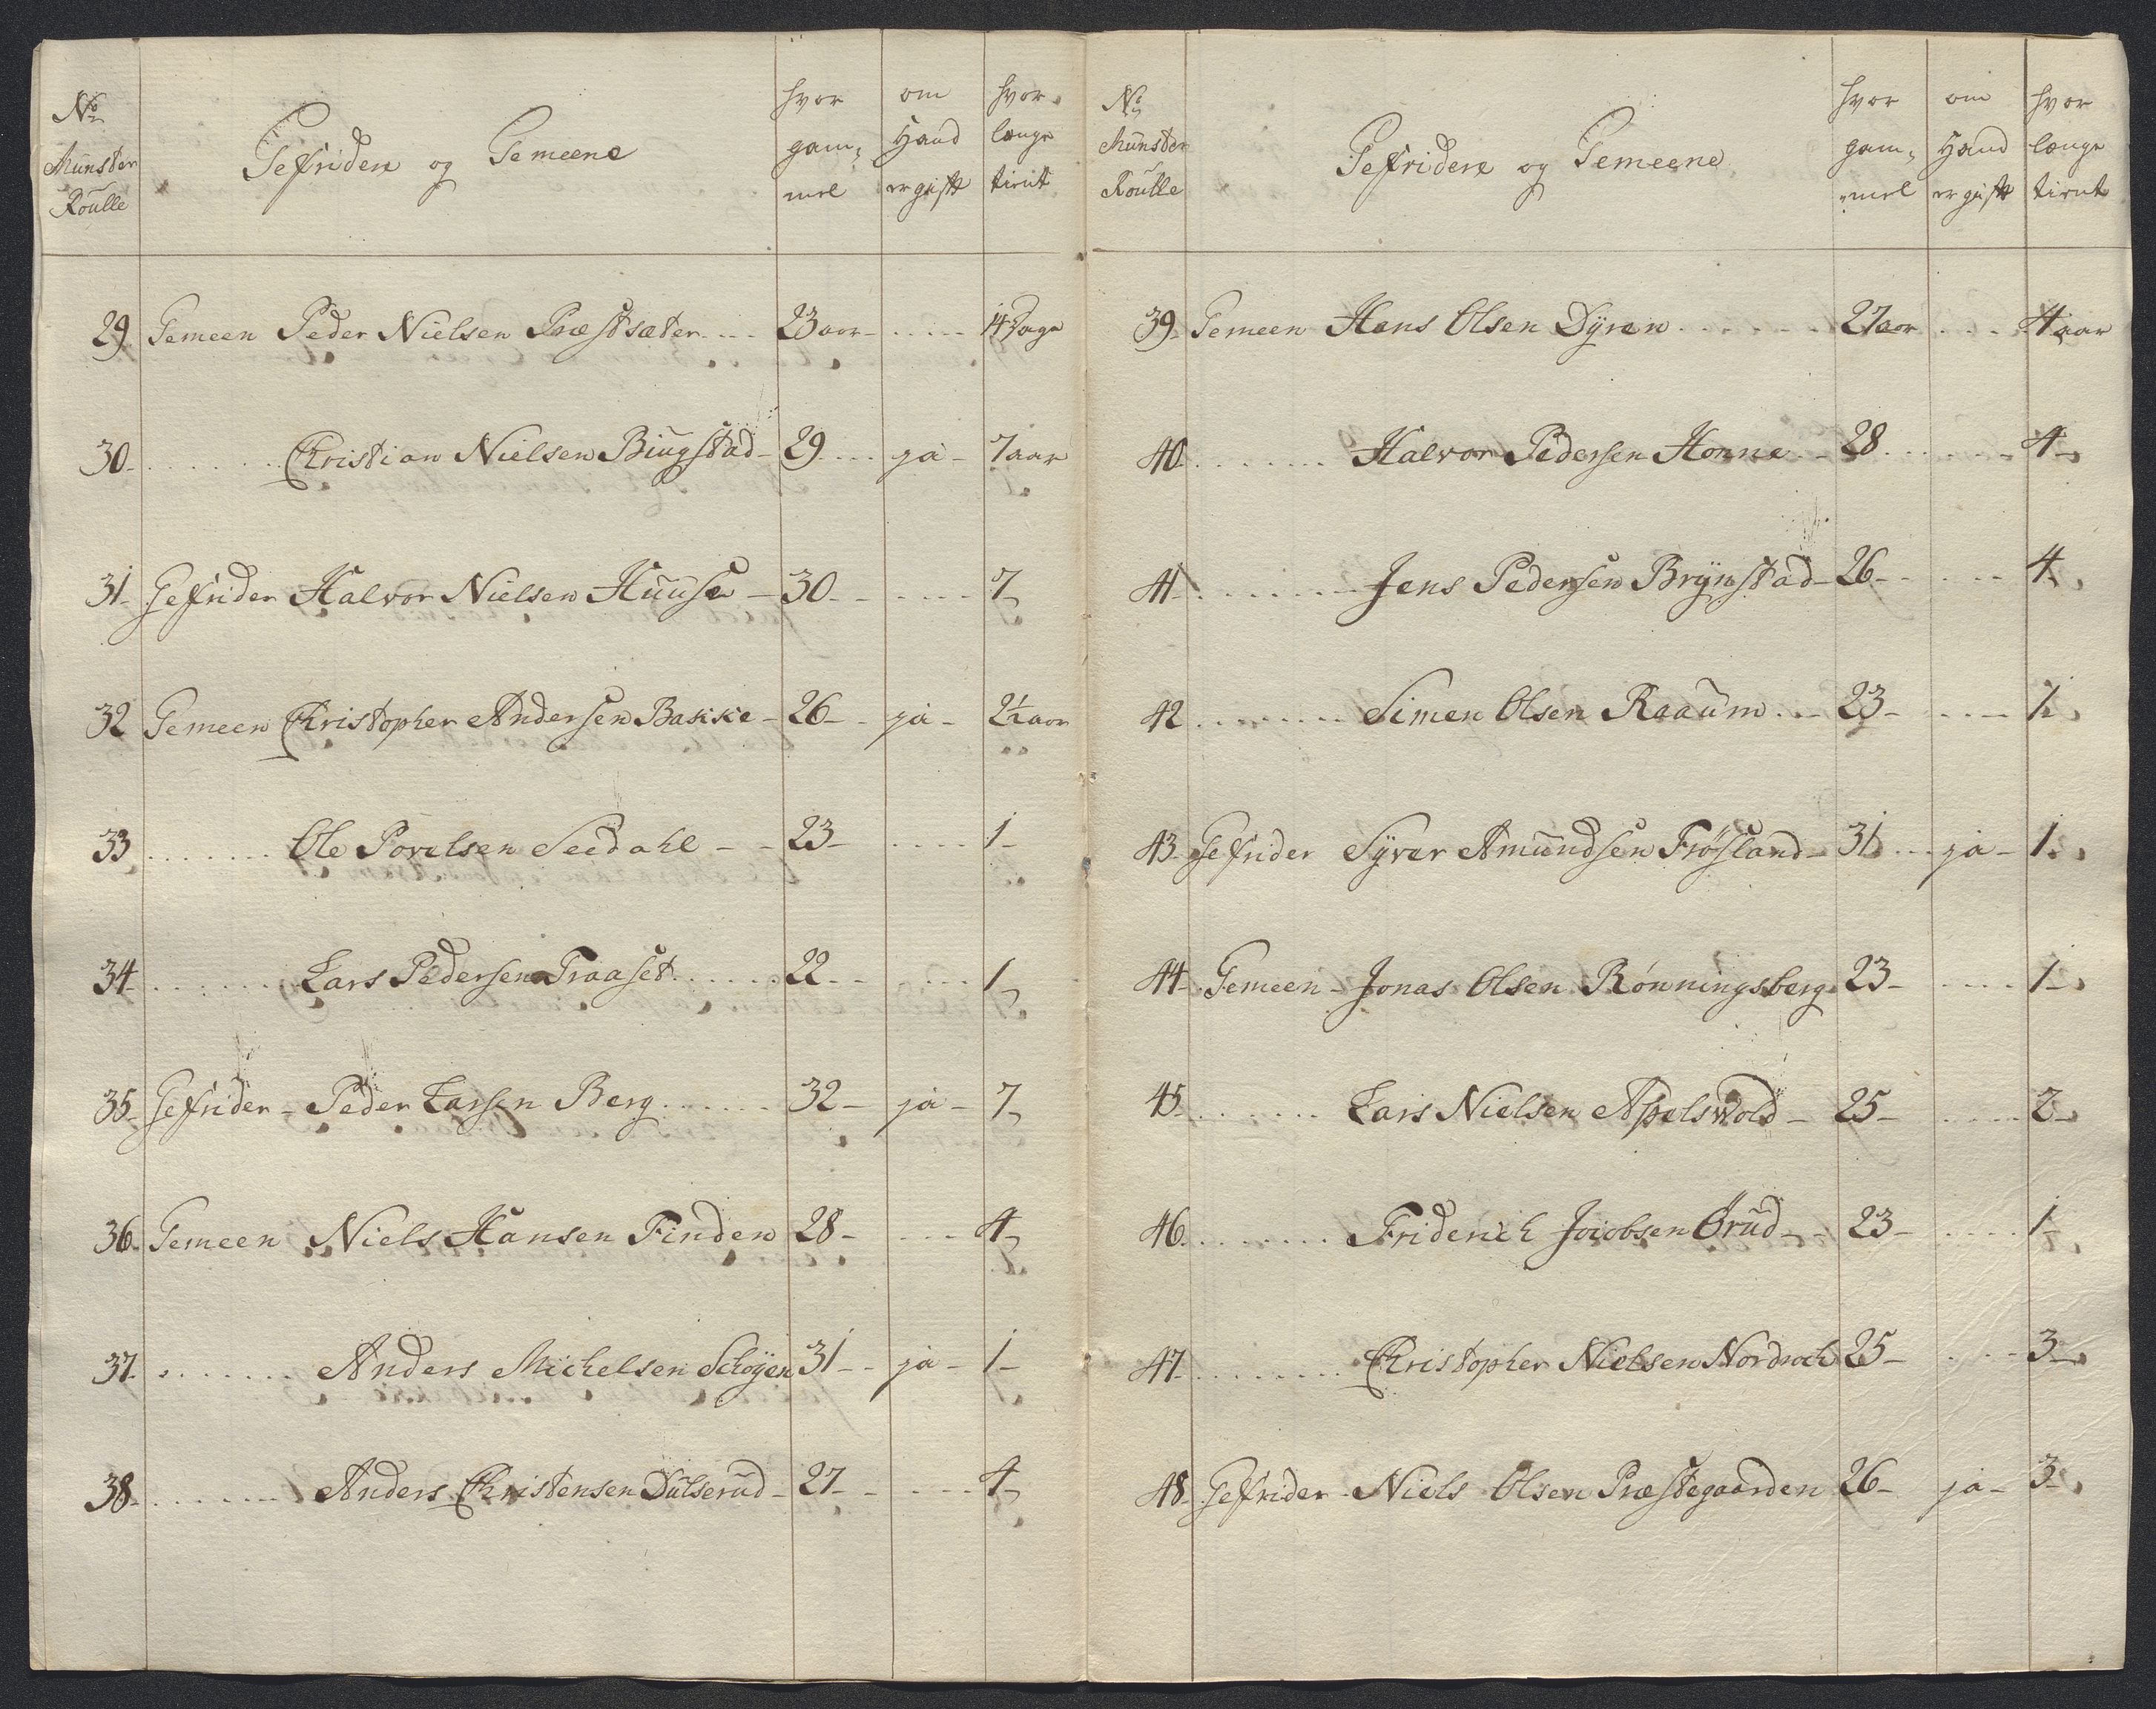 No Munster Roulle | Gefridere og Gemeene | hvor gam; mel | om Hand er gift | hvor længe tient
29. Gemeen Peder Nielsen Præstsæter.... 23 aar - ..... 14 Dage
30. ........ Christian Nielsen Biugstad - 29 ... ja - 7 aar
31. Gefrider Halvor Nielsen Huuse - 30 - ..... 7
32 Gemeen Christopher Andersen Bakke - 26 - - ja - 2½ aar
33 ........ Ole Povelsen Seedahl - - 23 - ..... 1 -
34. ........ Lars Pedersen Traaset ...... 22 - - .... 1
35. Gefrider - Peder Larsen Berg ...... 32 - ja - 7
36. Gemeen Niels Hansen Finden 28 - .... 4
37. ........ Anders Michelsen Schøyen 31 - - ja - 1 -
38. ........ Anders Christensen Dulserud - 27 - - ..... 4
No Munster Roulle | Gefridere og Gemeene | hvor gam; mel | om Hand er gift | hvor længe tient
39. Gemeen Hans Olsen Dÿren ...... 27 aar .... 4 aar
40. ........ Halvor Pedersen Honne - - 28 ...... 4 -
41. ........ Jens Pedersen Brÿnstad - 26 - - .... 4
42 ........ Simen Olsen Raaum ... 23 - ..... 1
43. Gefrider Sÿver Amundsen Frøsland - 31 ... ja - 1.
44. Gemeen - Jonas Olsen Rønningsberg 23 - ..... 1 -
45. ........ Lars Nielsen Apelswold - 25 - ..... 2 -
46. ........ Friderich Jacobsen Ørud - - 23 - ..... 1
47. ........ Christopher Nielsen Nordroch 25 - .... 3 -
48. Gefrider - Niels Olsen Præstegaarden 26 - ja - 3 -